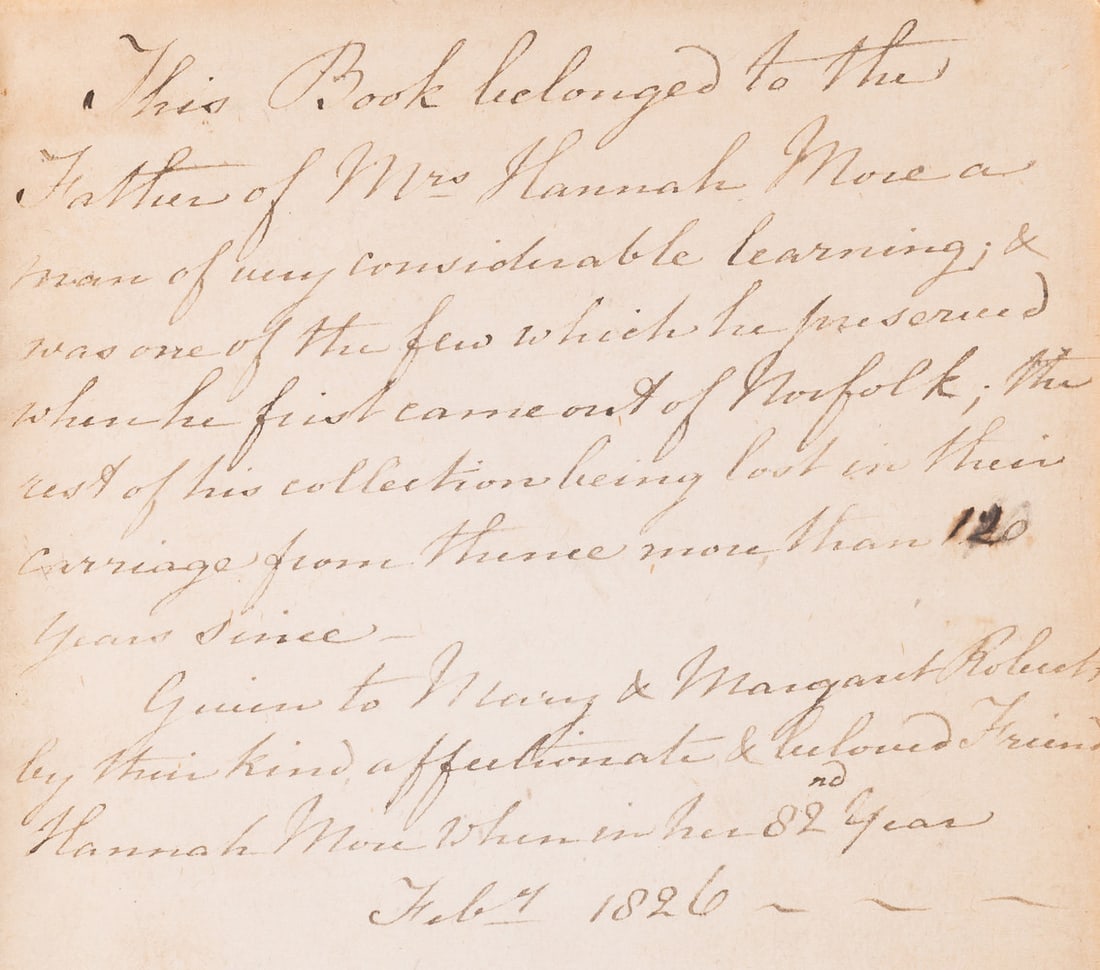 This Book belonged to the
Father of Mrs Hannah More a
man of very considerable learning; &
was one of the few which he preserved
when he first came out of Norfolk; the
rest of his collection being lost in their
carriage from thence more than 120
years since –
Given to Mary & Margaret Roberts
by their kind affectionate & beloved Friend
Hannah More when in her 82nd Year
Feby 1826 ~ ~ ~